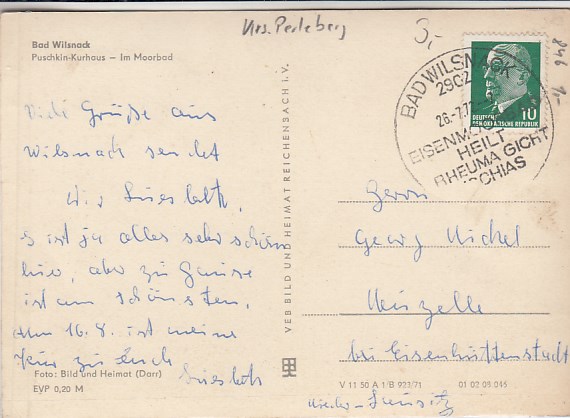 Krs. Perleberg
3,-
846
9,-
Bad Wilsnack
Puschkin-Kurhaus – Im Moorbad
BAD WILSNACK
2902
26.-7.7
EISENMOOR
HEILT
RHEUMA GICHT
ISCHIAS
10
DEUTSCHE
DEMOKRATISCHE REPUBLIK
Viele Grüße aus
Wilsnack sendet
Lieselott.
Es ist ja alles sehr schön
hier, aber zu Hause
ist am schönsten.
Am 16.8. ist meine
Kur zu Ende
Lieselott
VEB BILD UND HEIMAT REICHENBACH I.V.
Herrn
Georg Nickel
Neuzelle
bei Eisenhüttenstadt
Nieder-Lausitz
Foto: Bild und Heimat (Darr)
EVP 0,20 M
V 11 50 A 1/B 923/71 01 02 09 046